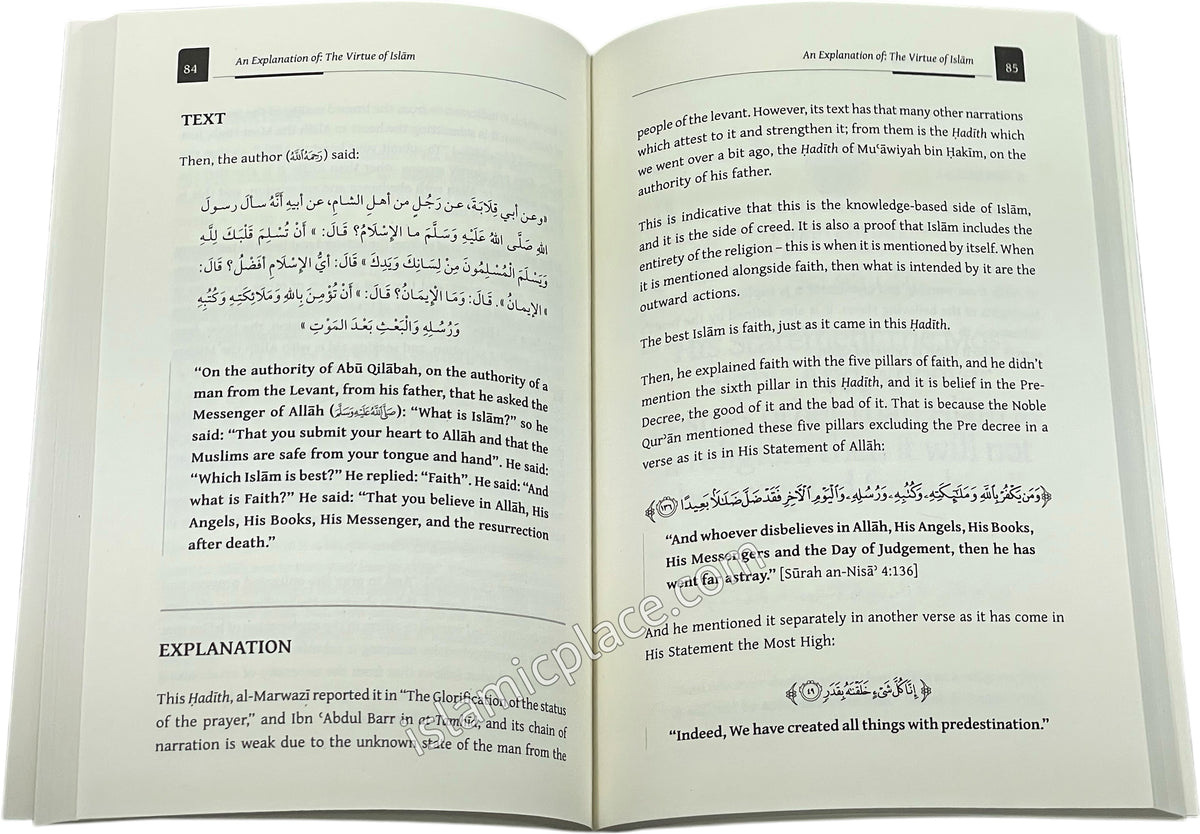 84
An Explanation of: The Virtue of Islām
TEXT
Then, the author (رَحِمَهُ ٱللَّهُ) said:
«وعن أبي قِلابَةَ، عن رَجُلٍ من أهلِ الشامِ، عن أبيهِ أنَّهُ سألَ رسولَ
اللهِ صَلَّى اللهُ عَلَيْهِ وَسَلَّمَ ما الإسْلامُ؟ قَالَ: » أَنْ تُسْلِمَ قَلْبَكَ لِلَّهِ
وَيَسْلَمَ الْمُسْلِمُونَ مِنْ لِسَانِكَ وَيَدِكَ » قَالَ: أيُّ الإسْلامِ أفضَلُ؟ قَالَ:
» الإيمانُ ». قَالَ: وَمَا الإِيمَانُ؟ قَالَ: » أَنْ تُؤْمِنَ بِاللهِ وَمَلَائِكَتِهِ وَكُتُبِهِ
وَرُسُلِهِ وَالْبَعْثِ بَعْدَ المَوْتِ »
“On the authority of Abū Qilābah, on the authority of a
man from the Levant, from his father, that he asked the
Messenger of Allāh (صَلَّى ٱللَّهُ عَلَيْهِ وَسَلَّمَ): “What is Islām?” so he
said: “That you submit your heart to Allāh and that the
Muslims are safe from your tongue and hand”. He said:
“Which Islām is best?” He replied: “Faith”. He said: “And
what is Faith?” He said: “That you believe in Allāh, His
Angels, His Books, His Messenger, and the resurrection
after death.”
EXPLANATION
This Ḥadīth, al-Marwazī reported it in “The Glorification of the status
of the prayer,” and Ibn ʿAbdul Barr in at-Tamhīd, and its chain of
narration is weak due to the unknown state of the man from the
An Explanation of: The Virtue of Islām
85
people of the levant. However, its text has that many other narrations
which attest to it and strengthen it; from them is the Ḥadīth which
we went over a bit ago, the Ḥadīth of Muʿāwiyah bin Ḥakīm, on the
authority of his father.
This is indicative that this is the knowledge-based side of Islām,
and it is the side of creed. It is also a proof that Islām includes the
entirety of the religion – this is when it is mentioned by itself. When
it is mentioned alongside faith, then what is intended by it are the
outward actions.
The best Islām is faith, just as it came in this Ḥadīth.
Then, he explained faith with the five pillars of faith, and he didn’t
mention the sixth pillar in this Ḥadīth, and it is belief in the Pre-
Decree, the good of it and the bad of it. That is because the Noble
Qur’ān mentioned these five pillars excluding the Pre decree in a
verse as it is in His Statement of Allāh:
﴿وَمَن يَكْفُرْ بِٱللَّهِ وَمَلَٰٓئِكَتِهِۦ وَكُتُبِهِۦ وَرُسُلِهِۦ وَٱلْيَوْمِ ٱلْءَاخِرِ فَقَدْ ضَلَّ ضَلَٰلًۢا بَعِيدًا ١٣٦﴾
“And whoever disbelieves in Allāh, His Angels, His Books,
His Messengers and the Day of Judgement, then he has
went far astray.” [Sūrah an-Nisāʾ 4:136]
And he mentioned it separately in another verse as it has come in
His Statement the Most High:
﴿إِنَّا كُلَّ شَىْءٍ خَلَقْنَٰهُ بِقَدَرٍ ٤٩﴾
“Indeed, We have created all things with predestination.”
islamicplace.com